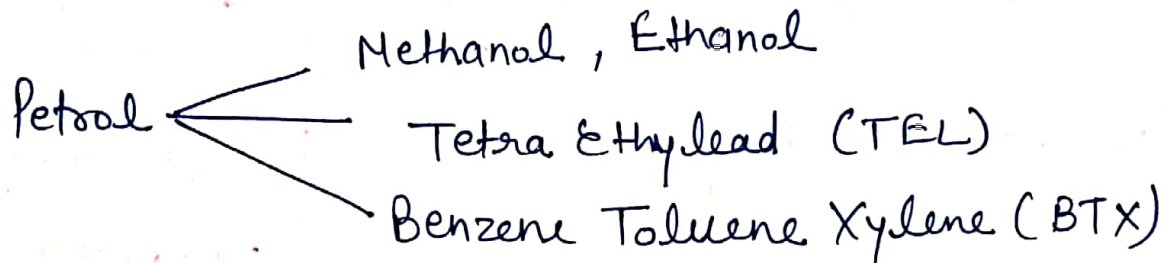 Methanol, Ethanol
Petrol
Tetra Ethyl lead (TEL)
Benzene Toluene Xylene (BTX)